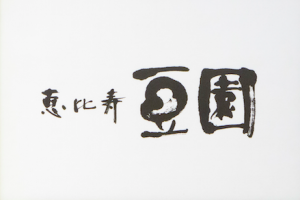 恵比寿 豆園